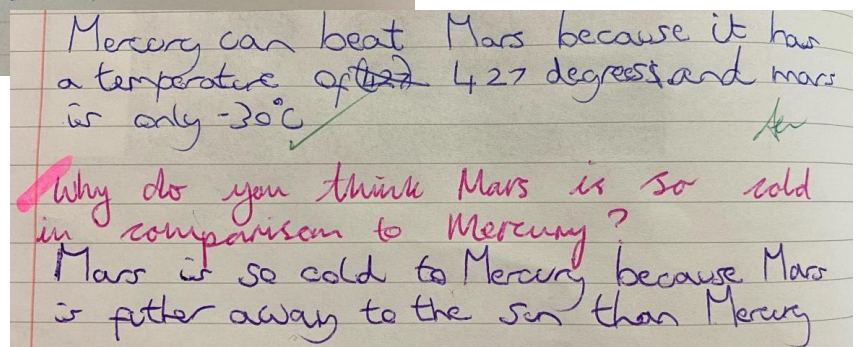 Mercury can beat Mars because it has
a temperature of 427 degrees and mars
is only -30°C
Why do you think Mars is so cold
in comparison to Mercury?
Mars is so cold to Mercury because Mars
is futher away to the sun than Mercury